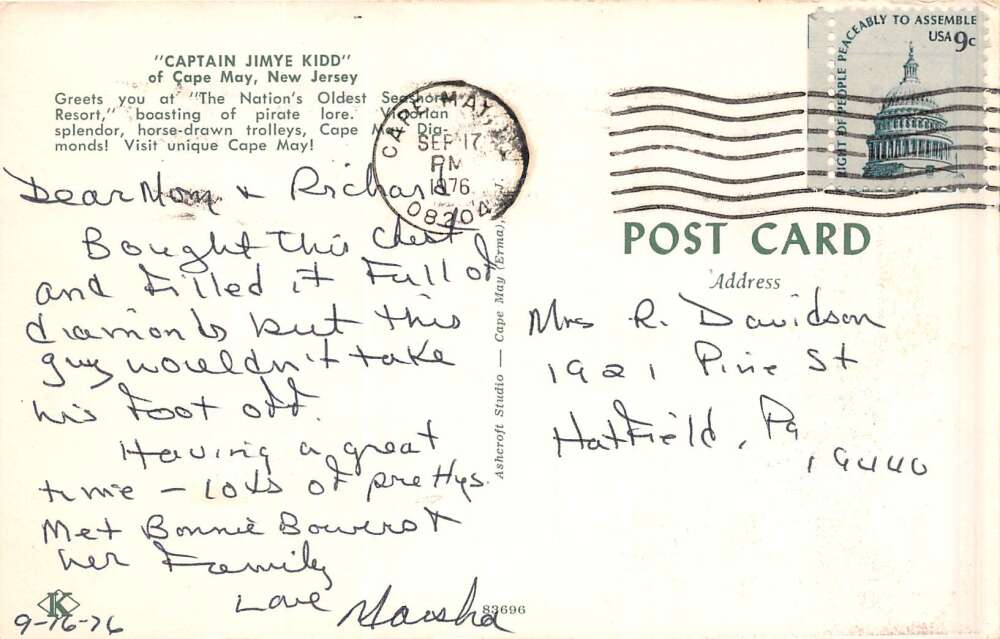 "CAPTAIN JIMYE KIDD"
of Cape May, New Jersey
Greets you at "The Nation's Oldest Seashore
Resort," boasting of pirate lore. Victorian
splendor, horse-drawn trolleys, Cape May Dia-
monds! Visit unique Cape May!
Dear Mom & Richard
Bought this chest
and filled it full of
diamonds but this
guy wouldn't take
his foot off.
Having a great
time - lots of prettys.
Met Bonnie Bowers &
her Family
Love Marsha
9-16-76
K
83696
Ashcroft Studio — Cape May (Erma), N. J.
CAPE MAY, N.J.
SEP 17
PM
1976
08204
RIGHT OF PEOPLE PEACEABLY TO ASSEMBLE
USA 9c
POST CARD
Address
Mrs R. Davidson
1921 Pine St
Hatfield, Pa
19440